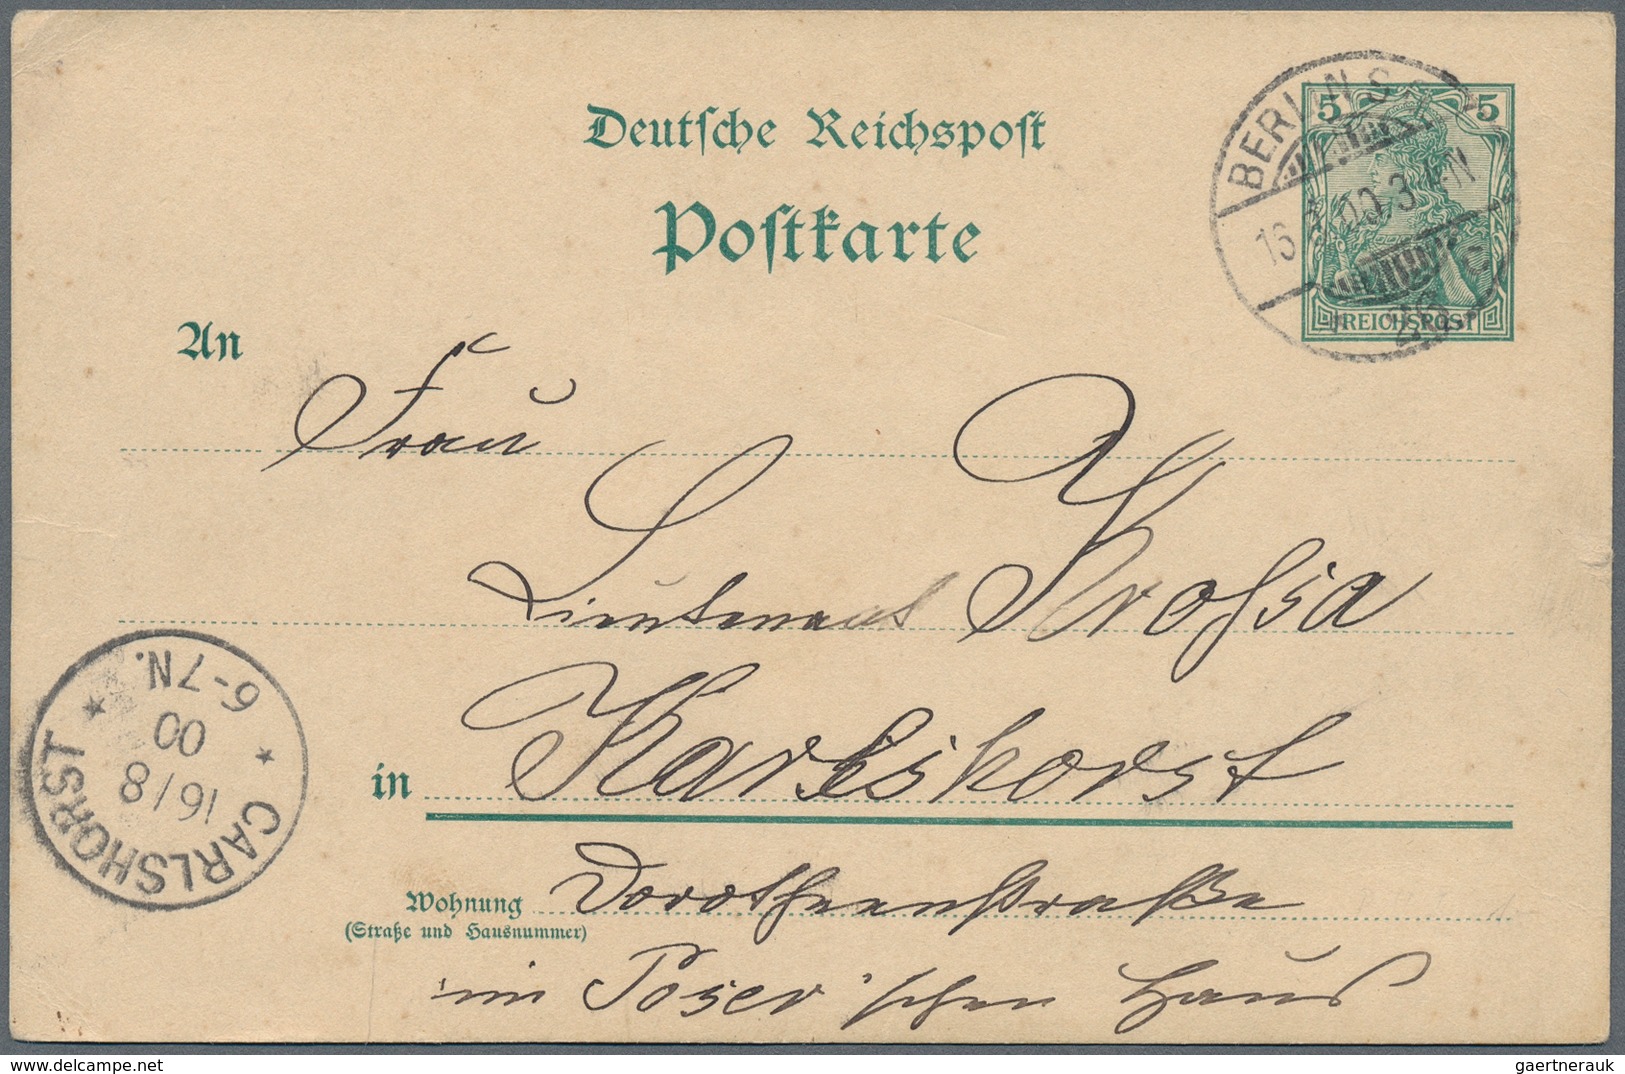 Deutsche Reichspost
Postkarte
5 5
REICHSPOST
BERLIN S.
16. 00. 3-4N
An Frau
Lieutenant
in Karlshorst
Wohnung Dorotheenstraße
(Straße und Hausnummer)
im Poser'schen Haus
CARLSHORST
16/8
00
6-7N.
gaertnerauk